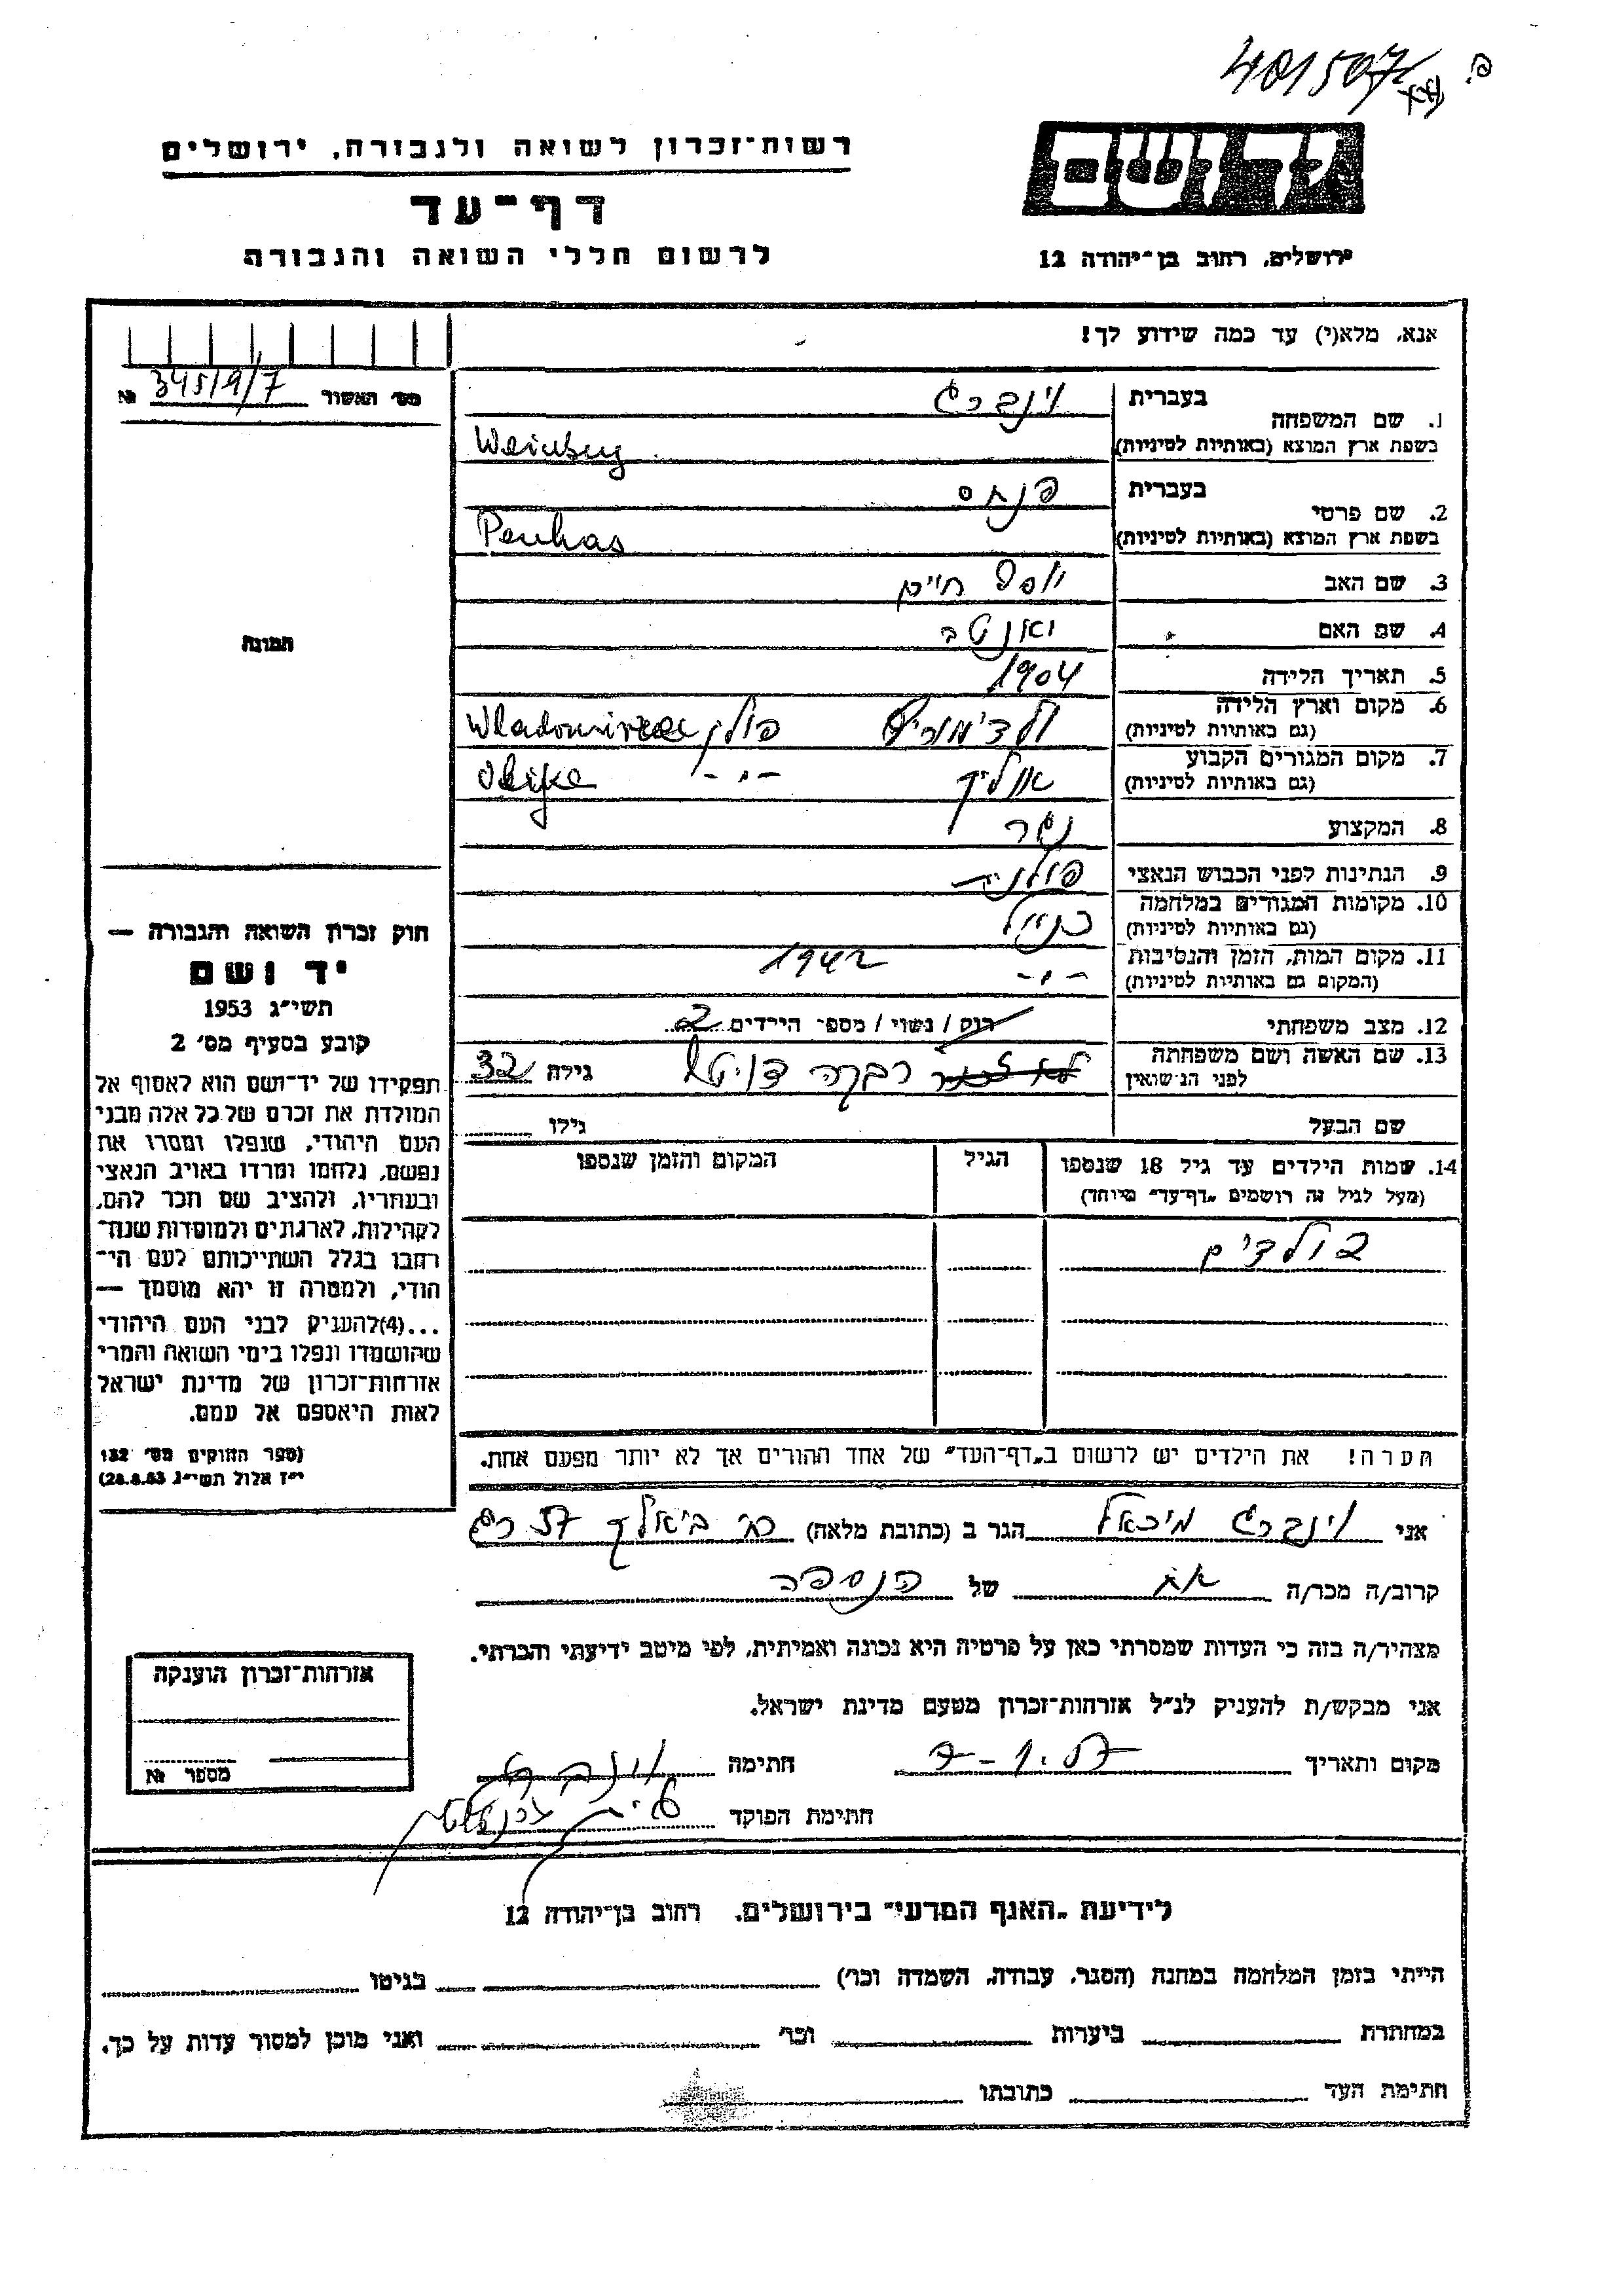 401507
רשות־זכרון לשואה ולגבורה, ירושלים
דף־עד
לרשום חללי השואה והגבורה
יד ושם
ירושלים, רחוב בן־יהודה 12
אנא, מלא(י) עד כמה שידוע לך!
מס׳ האשור 345/9/7 №
תמונה
חוק זכרון השואה והגבורה —
יד ושם
תשי״ג 1953
קובע בסעיף מס׳ 2
תפקידו של יד־ושם הוא לאסוף אל
המולדת את זכרם של כל אלה מבני
העם היהודי, שנפלו ומסרו את
נפשם, נלחמו ומרדו באויב הנאצי
ובעוזריו, ולהציב שם וזכר להם,
לקהילות, לארגונים ולמוסדות שנח־
רבו בגלל השתייכותם לעם הי־
הודי, ולמטרה זו יהא מוסמך —
...(4) להעניק לבני העם היהודי
שהושמדו ונפלו בימי השואה והמרי
אזרחות־זכרון של מדינת ישראל
לאות היאספם אל עמם.
(ספר החוקים מס׳ 132
י״ז אלול תשי״ג 28.8.53)
1. שם המשפחה בעברית וינברג
בשפת ארץ המוצא (באותיות לטיניות) Weinberg
2. שם פרטי בעברית פנחס
בשפת ארץ המוצא (באותיות לטיניות) Penhas
3. שם האב יוסף חיים
4. שם האם
5. תאריך הלידה 1904
6. מקום וארץ הלידה פולין
(גם באותיות לטיניות)
7. מקום המגורים הקבוע -״-
(גם באותיות לטיניות)
8. המקצוע נגר
9. הנתינות לפני הכבוש הנאצי פולנית
10. מקומות המגורים במלחמה כנ״ל
(גם באותיות לטיניות)
11. מקום המות, הזמן והנסיבות -״- 1942
(המקום גם באותיות לטיניות)
12. מצב משפחתי רווק / נשוי / מספר הילדים 2
13. שם האשה ושם משפחתה רבקה גילה 32
לפני הנישואין
שם הבעל גילו
14. שמות הילדים עד גיל 18 שנספו הגיל המקום והזמן שנספו
(מעל לגיל זה רושמים „דף־עד״ מיוחד)
2 ילדים
הערה! את הילדים יש לרשום ב„דף־העד״ של אחד ההורים אך לא יותר מפעם אחת.
אני וינברג מיכאל הגר ב (כתובת מלאה) ביאליק 57 רג
קרוב/ה מכר/ה אח של הנספה
מצהיר/ה בזה כי העדות שמסרתי כאן על פרטיה היא נכונה ואמיתית, לפי מיטב ידיעתי והכרתי.
אני מבקש/ת להעניק לנ״ל אזרחות־זכרון מטעם מדינת ישראל.
מקום ותאריך 7-1.57 חתימה וינברג
חתימת הפוקד
אזרחות־זכרון הוענקה
מספר №
לידיעת „האגף המדעי״ בירושלים, רחוב בן־יהודה 12
הייתי בזמן המלחמה במחנה (הסגר, עבודה, השמדה וכו׳) בגיטו
במחתרת ביערות וכו׳ ואני מוכן למסור עדות על כך.
חתימת העד כתובתו